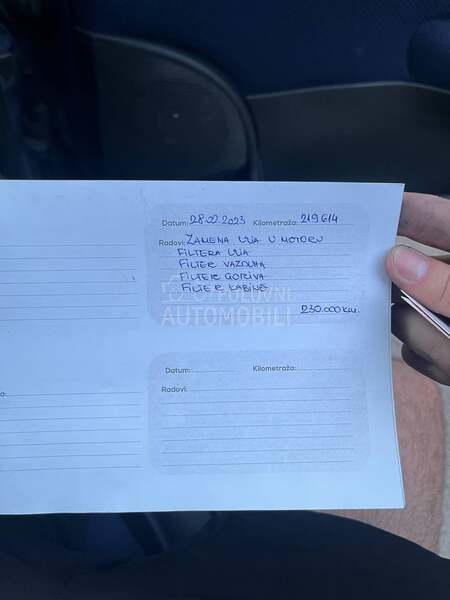 Datum: 28.02.2023 Kilometraža: 219614
Radovi: ZAMENA ULJA U MOTORU
FILTERA ULJA
FILTER VAZDUHA
FILTER GORIVA
FILTER KABINE
POLOVNI
AUTOMOBILI
230.000 km.
Datum: Kilometraža:
Radovi: